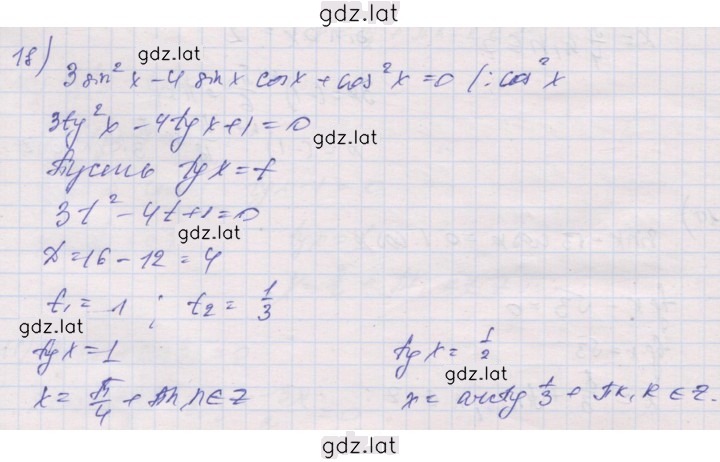 gdz.lat
18)
gdz.lat
3 sin² x - 4 sin x cos x + cos² x = 0 /: cos² x
3tg² x - 4tg x + 1 = 0
gdz.lat
Пусть tg x = t
3t² - 4t + 1 = 0
gdz.lat
D = 16 - 12 = 4
t₁ = 1 ; t₂ = 1/3
gdz.lat
tg x = 1 tg x = 1/2
gdz.lat
x = π/4 + πn, n ∈ Z x = arctg 1/3 + πk, k ∈ Z.
gdz.lat